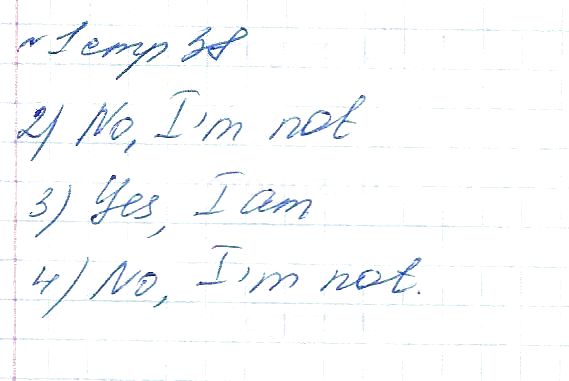 №1 стр 38
2) No, I'm not
3) Yes, I am
4) No, I'm not.